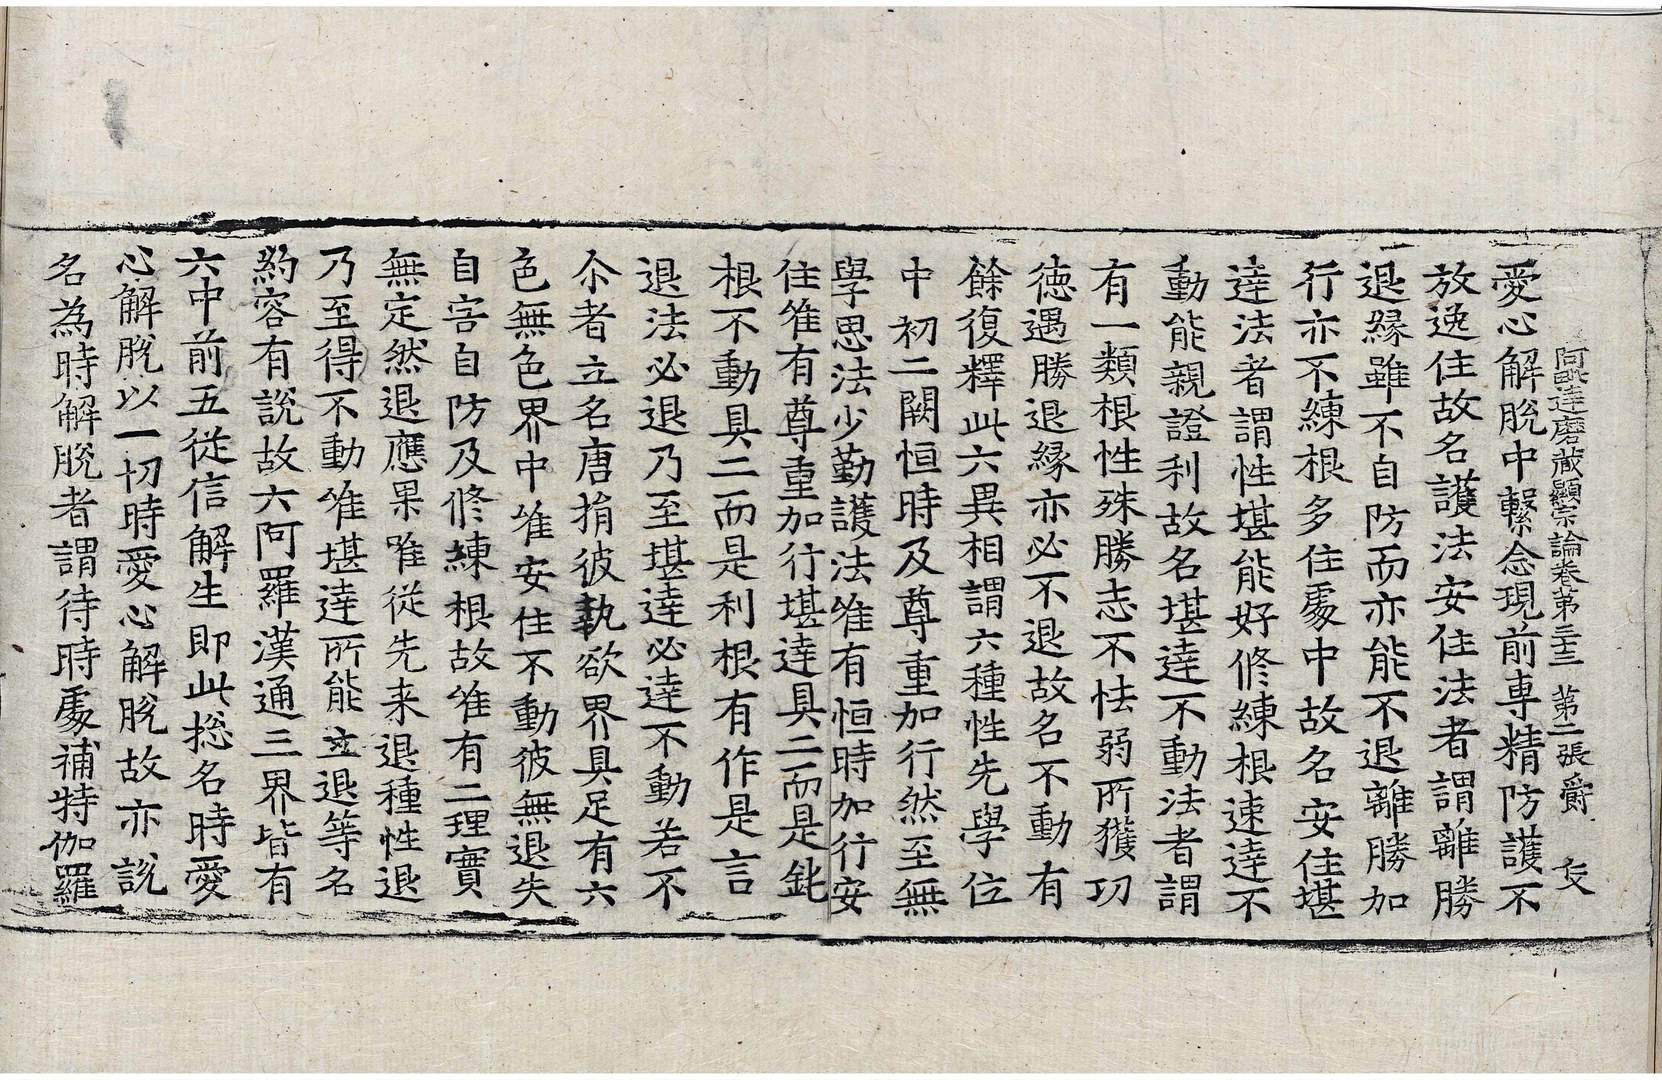 阿毗達磨藏顯宗論卷第三十三 第二張 爵
愛心解脫中繫念現前專精防護不
放逸住故名護法安住法者謂離勝
退緣雖不自防而亦能不退離勝加
行亦不練根多住處中故名安住堪
達法者謂性堪能好修練根速達不
動能親證利故名堪達不動法者謂
有一類根性殊勝志不怯弱所獲功
德遇勝退緣亦必不退故名不動有
餘復釋此六異相謂六種性先學位
中初二闕恒時及尊重加行然至無
學思法少勤護法唯有恒時加行安
住唯有尊重加行堪達具二而是鈍
根不動具二而是利根有作是言
退法必退乃至堪達必達不動若不
尒者立名唐捐彼執欲界具足有六
色無色界中唯安住不動彼無退失
自害自防及修練根故唯有二理實
無定然退應果唯從先来退種性退
乃至得不動唯堪達所能立退等名
約容有說故六阿羅漢通三界皆有
六中前五從信解生即此揔名時愛
心解脫以一切時愛心解脫故亦說
名為時解脫者謂待時處補特伽羅